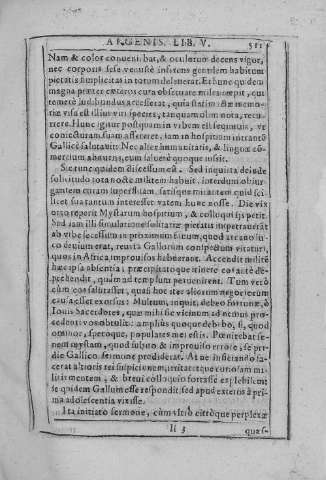 ARGENIS. LIB. V. 511
Nam & color conveni. bat, & oculorum decens vigor,
nec corporis sese venustè inferens gentilem habitum
pietatis simplicitas in totum deleverat. Et hunc quidem
magna præter cæteros cura observare miles cœpit, qui
temerè ludibundus accesserat, quia statim eius memo-
riæ visa est illius viri species, tanquam olim nota, recur-
rere. Hunc igitur postquam in vrbem est sequutus, ve
coniecturam suam assereret, iam in hospitium intrantē
Gallicè salutavit: Nec alter humanitatis, & linguæ cō-
mercium abnuens, eum salvere quoque iussit.
Sic tunc quidem discessum est. Sed inquies deinde
solicitudo tota nocte militem habuit, interdum obiur-
gantem curam superstitem, satisque mirantem quid sci-
licet sua tantum interesset vatem hunc nosse. Die vix
orto reperit Mysarum hospitium, & colloquij spe petit.
Sed iam illi simulatione solitariæ pietatis impetraverāt
ab vrbe secessum in proximum situm, quod arcano li-
co devium erat, reuita Gallorum conspectum vitatur,
quos in Africa improvisos habuerant. Accendit militē
hæc ipsa absentia: præcipitatoque itinere eos antè de-
prehendit, quàm ad templum pervenirent. Tum verò
eum consalutasset, quasi hoc iter aliorum negotiorum
causa esset exorsus: Multum, inquit, debeo fortunæ, ò
Iovis Sacerdotes, quæ mihi sic vicinum ad nemus proce-
denti vos obtulit: amplius quoque debebo, si, quod
conor, sperоque, populares mei estis. Pœnitebat se-
nem mystam, quòd subito & improviso errore, se pri-
die Gallico sermone prodiderat. At ne inficiando fa-
cerat altioris rei suspicionem, irritatetque curiosam mi-
litis mentem, & brevi colloquio fortasse explebilem:
se quidem Gallum esse respondit: sed apud exteros à pri-
ma adolescentia vixisse.
Ita initiato sermone, cùm vltrò citròque perplexæ
Ii 3 quæs-